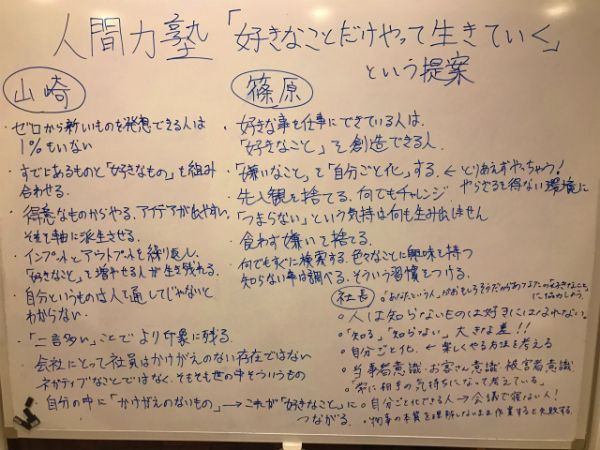 人間力塾「好きなことだけやって生きていく」
という提案
山崎
・ゼロから新しいものを発想できる人は
1%もいない
・すでにあるものと「好きなもの」を組み
合わせる。
・得意なものからやる。アイデアが出やすい。
それを軸に派生させる。
・インプットとアウトプットを繰り返し、
「好きなこと」を増やせる人が生き残れる。
・自分というものは人を通してじゃないと
わからない。
・「一言多い」ことでより印象に残る。
・会社にとって社員はかけがえのない存在ではない
ネガティブなことではなく、そもそも世の中そういうもの
自分の中に「かけがえのないもの」→これが「好きなこと」に
つながる。
篠原
・好きな事を仕事にできている人は、
「好きなこと」を創造できる人。
・「嫌いなこと」を「自分ごと化」する。←とりあえずやっちゃう!
やらざるを得ない環境に
・先入観を捨てる。何でもチャレンジ
・「つまらない」という気持は何も生み出しません
・食わず嫌いを捨てる。
・何でもすぐに検索する。色々なことに興味を持つ
知らない事は調べる。そういう習慣をつける。
社長
○「あなたという人」がおもしろそうだからあなたの「好きなこと」
に協力しよう。
○人は知らないものは好きにはなれない。
○「知る」「知らない」大きな差!!
○自分ごと化 ← 楽しくやる方法を考える
○当事者意識・お客さん意識・被害者意識
○「常に相手の気持ちになって考えている」
○自分ごと化できる人→会議で寝ない人!
○物事の本質を理解しないまま作業すると失敗する。